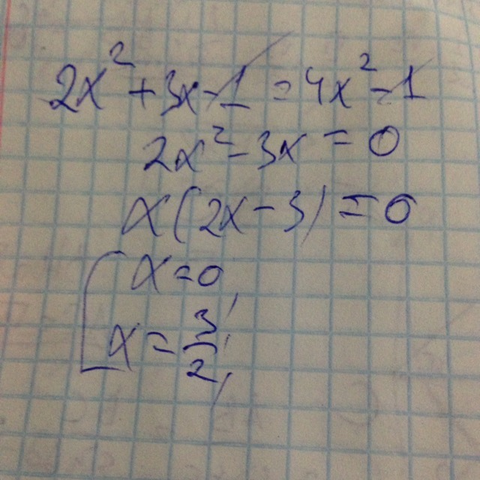 2x² + 3x - 1 = 4x² - 1
2x² - 3x = 0
x(2x - 3) = 0
[ x = 0,
x = 3/2,